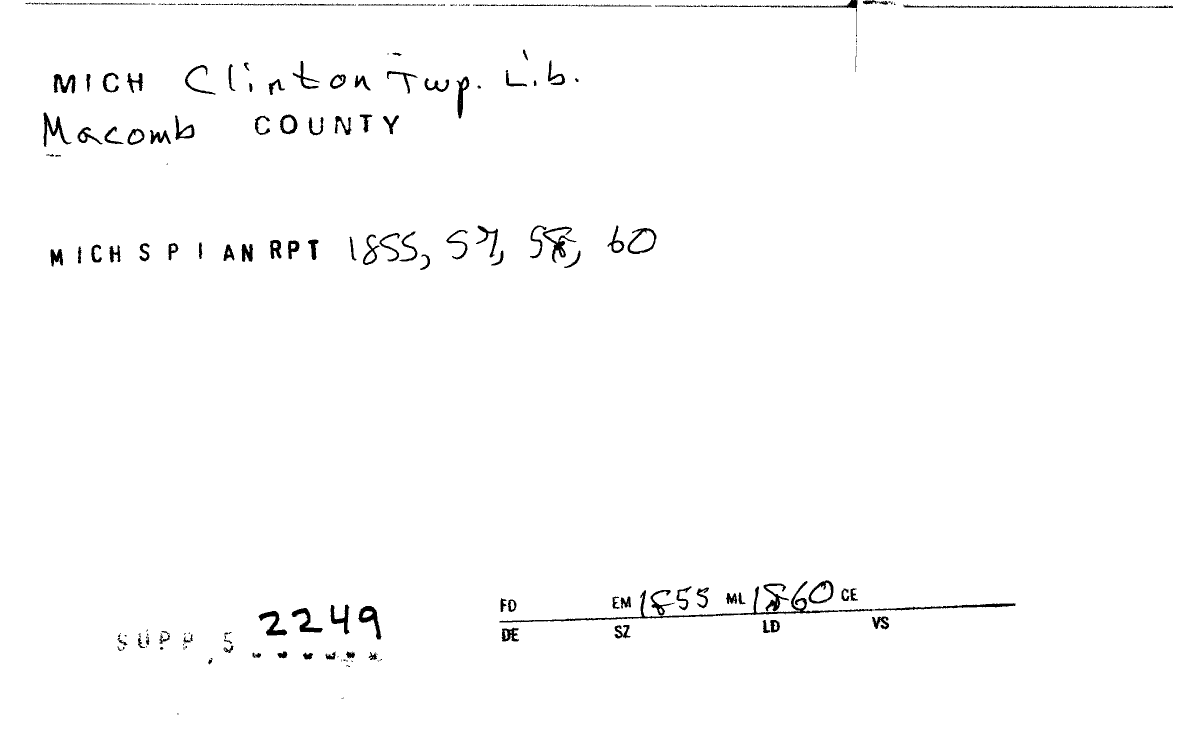 MICH Clinton Twp. Lib.
Macomb COUNTY
MICH S P I AN RPT 1855, 57, 58, 60
SUPP, 5 2249
FD EM 1855 ML 1860 CE
DE SZ LD VS